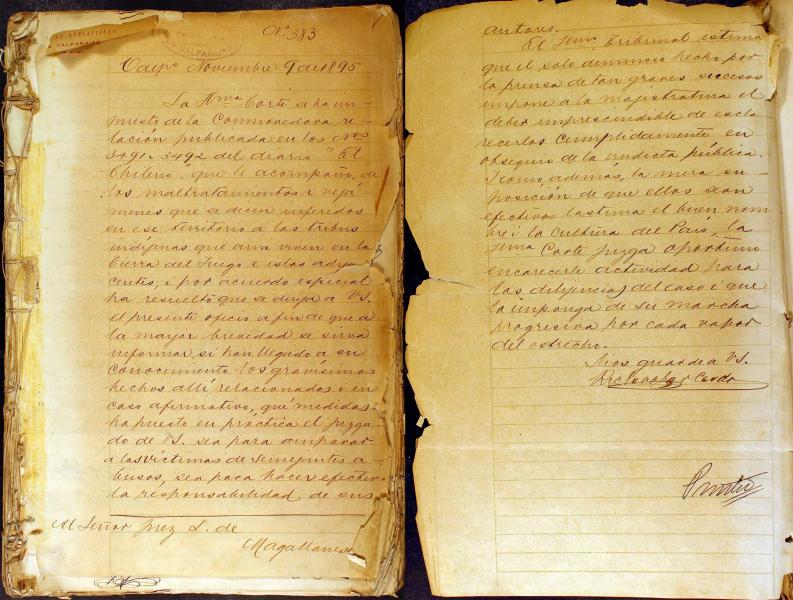 DE APELACIONES
VALPARAISO
VALPARAISO
Nº 383
Noviembre 9 de 1895
La Iltma Corte se ha im-
puesto de la Conmovedora re-
lación publicada en los Nos
3491 i 3492 del diario "El
Chileno", que le acompaño, de
los maltratamientos i vejá-
menes que se dicen inferidos
en ese territorio a las tribus
indíjenas que aun viven en la
Tierra del Fuego e islas adya
centes, i por acuerdo especial
ha resuelto que se dirija a VS.
el presente oficio a fin de que a
la mayor brevedad se sirva
informar si han llegado a su
conocimiento los gravísimos
hechos allí relacionados i en
caso afirmativo, qué medidas
ha puesto en práctica el juzga
do de VS. sea para amparar
a las víctimas de semejantes a-
busos, sea para hacer efectiva
la responsabilidad de sus
Al Señor Juez L. de
Magallanes
autores.
El Iltmo Tribunal estima
que el solo denuncio hecho por
la prensa de tan graves sucesos
impone a la majistratura el
deber imprescindible de escla
recerlos cumplidamente en
obsequio de la vindicta pública.
I como además, la mera su-
posición de que ellos sean
efectivos lastima el buen nom
bre i la cultura del País, la
Iltma Corte juzga oportuno
encarecerle actividad para
las diligencias del caso i que
la imponga de su marcha
progresiva por cada vapor
del estrecho.
Dios guarde a VS.